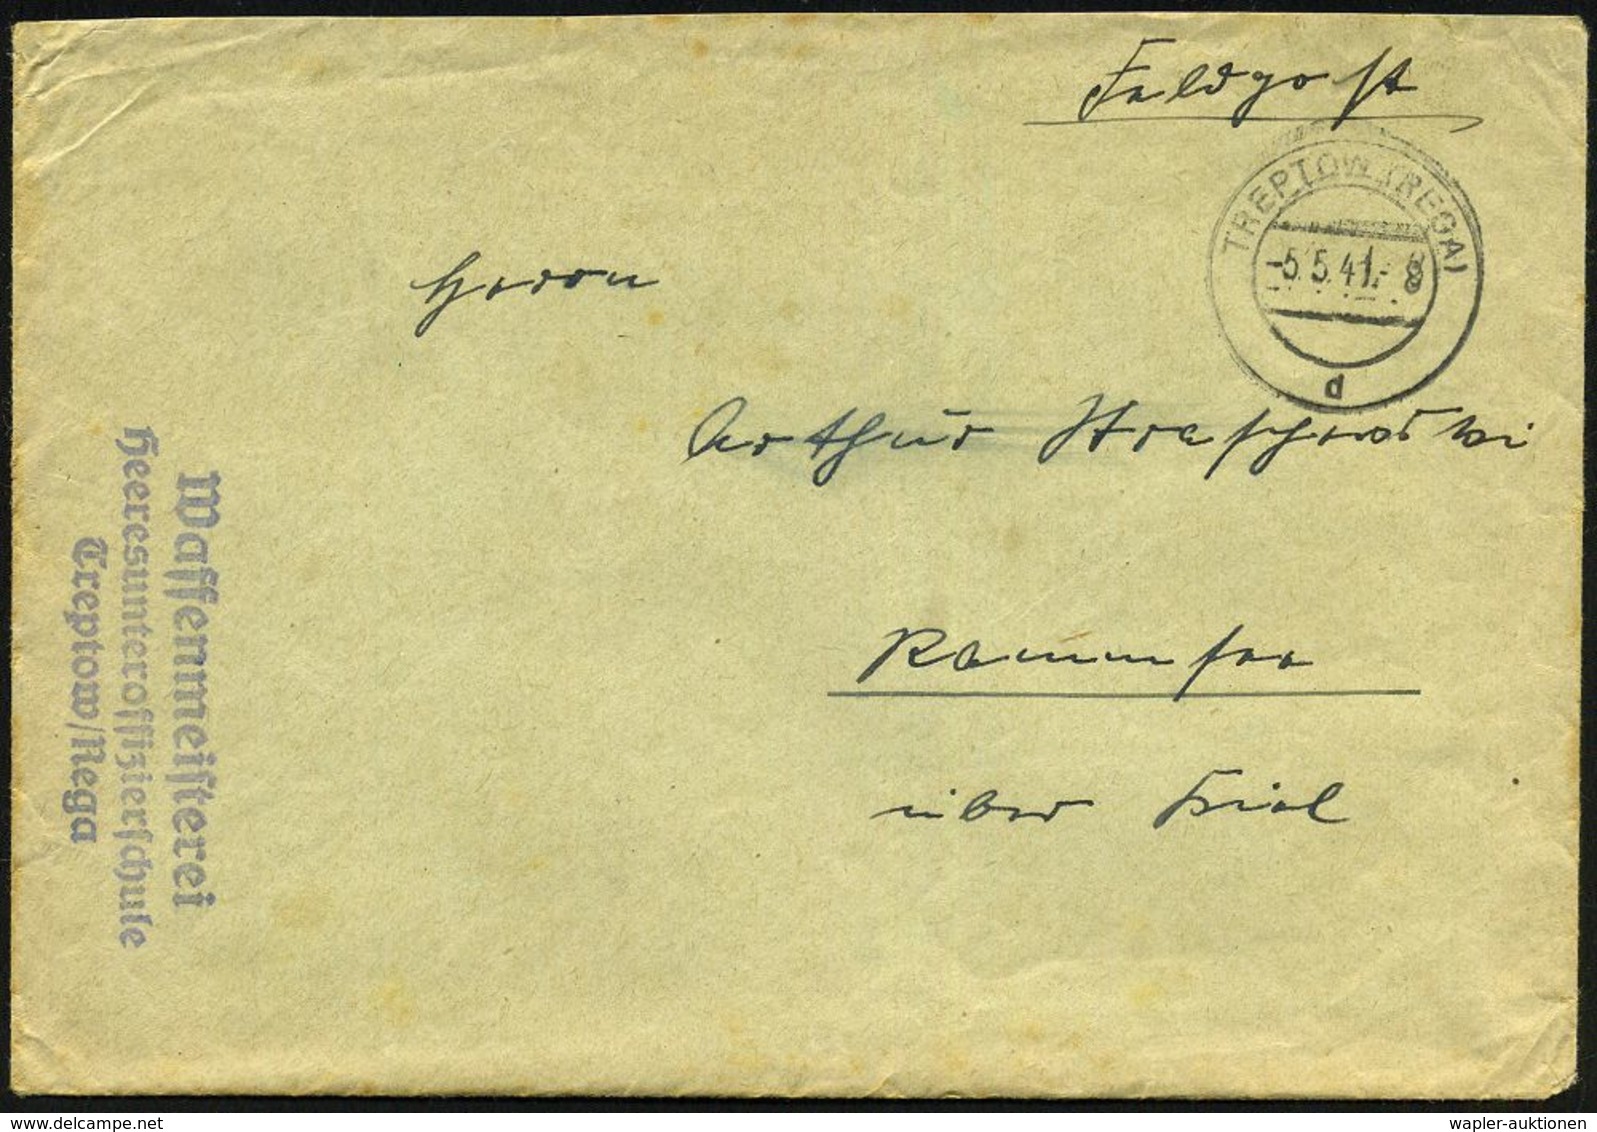 Feldpost
TREPTOW (REGA)
-5.5.41.- 8
d
Herrn
Arthur
Rammsee
über Kiel
Waffenmeisterei
Heeresunteroffizierschule
Treptow/Rega
www.delcampe.net
wapler-auktionen